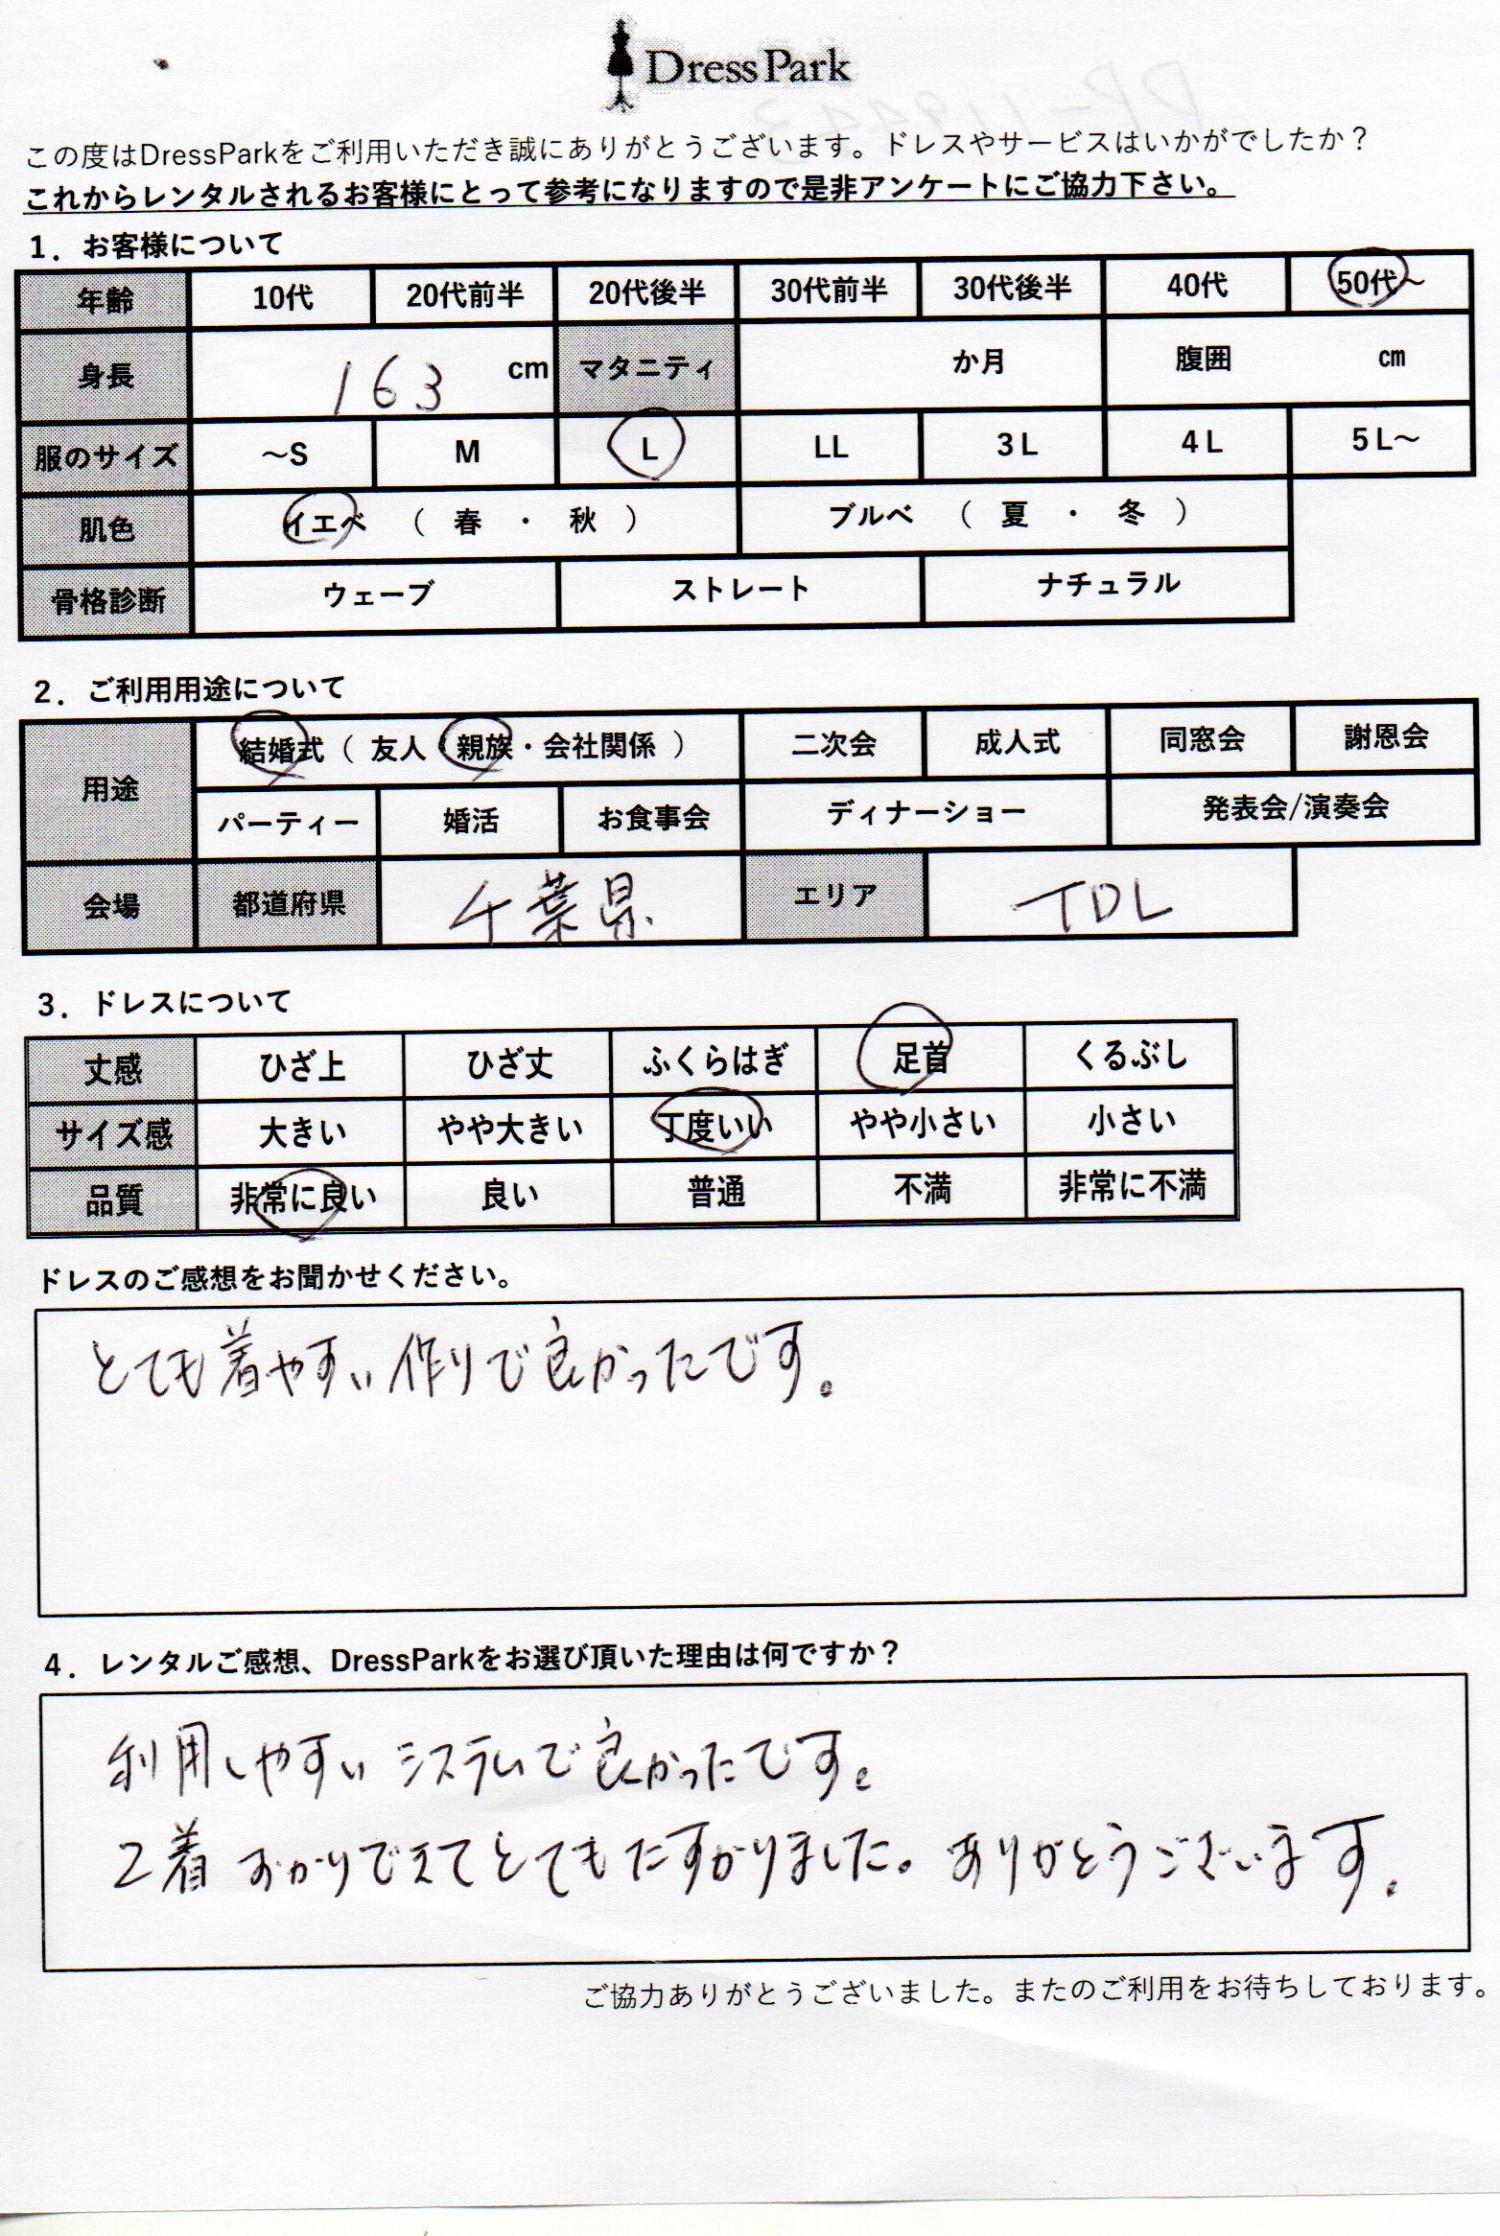 DressPark
この度はDressParkをご利用いただき誠にありがとうございます。ドレスやサービスはいかがでしたか？
これからレンタルされるお客様にとって参考になりますので是非アンケートにご協力下さい。
1．お客様について
年齢 10代 20代前半 20代後半 30代前半 30代後半 40代 50代～
身長 163 cm マタニティ か月 腹囲 cm
服のサイズ ～S M L LL 3L 4L 5L～
肌色 イエベ （ 春 ・ 秋 ） ブルベ （ 夏 ・ 冬 ）
骨格診断 ウェーブ ストレート ナチュラル
2．ご利用用途について
用途 結婚式（ 友人・親族・会社関係 ） 二次会 成人式 同窓会 謝恩会
パーティー 婚活 お食事会 ディナーショー 発表会/演奏会
会場 都道府県 千葉県 エリア TDL
3．ドレスについて
丈感 ひざ上 ひざ丈 ふくらはぎ 足首 くるぶし
サイズ感 大きい やや大きい 丁度いい やや小さい 小さい
品質 非常に良い 良い 普通 不満 非常に不満
ドレスのご感想をお聞かせください。
とても着やすい作りで良かったです。
4．レンタルご感想、DressParkをお選び頂いた理由は何ですか？
利用しやすいシステムで良かったです。
2着おかりできてとてもたすかりました。ありがとうございます。
ご協力ありがとうございました。またのご利用をお待ちしております。